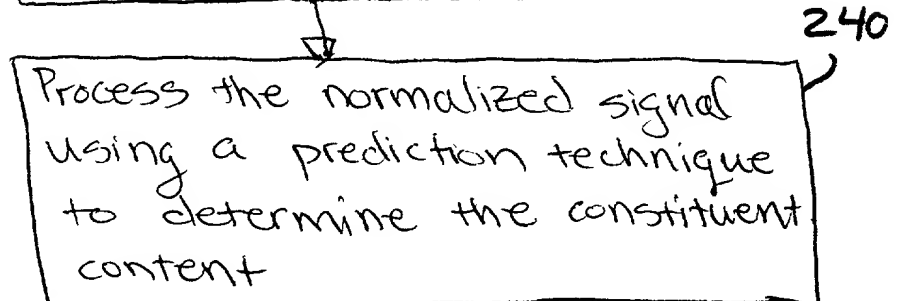 240
Process the normalized signal
using a prediction technique
to determine the constituent
content